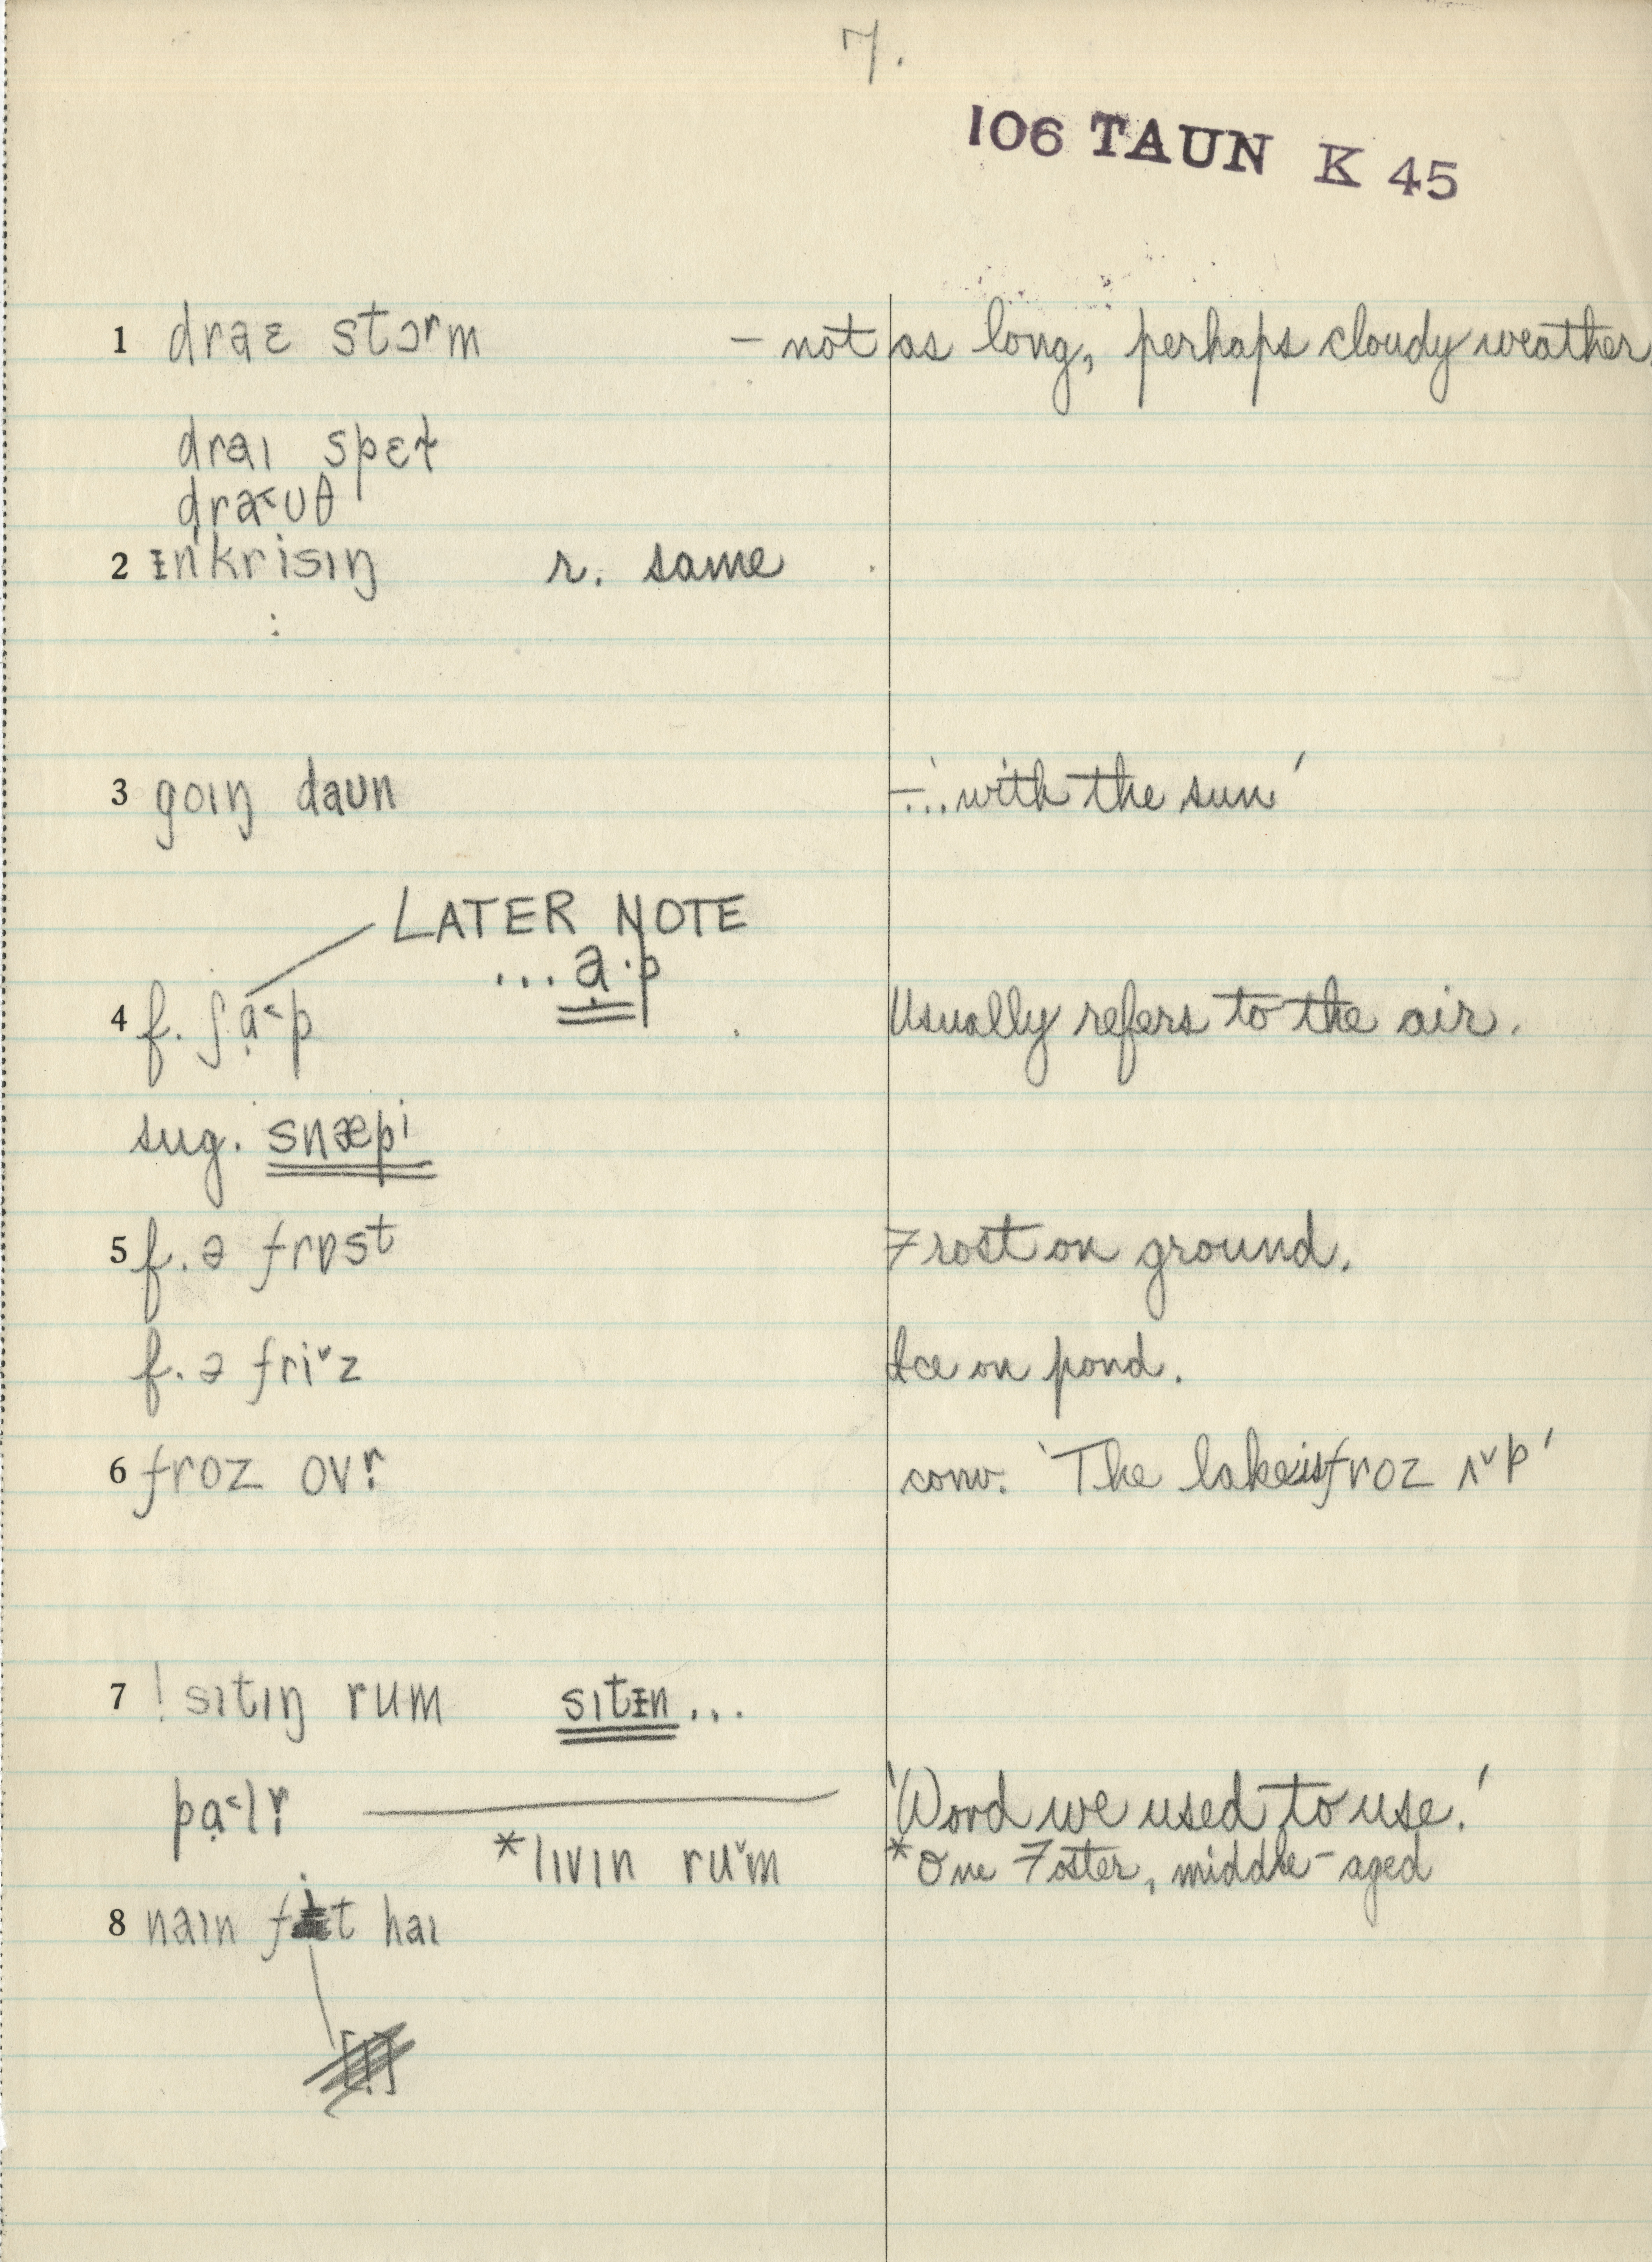 7.
106 TAUN K 45
1 draɛ stɔrm – not as long, perhaps cloudy weather.
draɪ spɛɫ
dra˂ʊθ
2 ɪn'krisɪŋ r. same
3 goɪŋ daʊn –'...with the sun'
LATER NOTE
... ạ·p
4 f. ʃạ˂p Usually refers to the air.
sug. snæpi
5 f. ə frɒst Frost on ground.
f. ə fri˅z Ice on pond.
6 froz ovr̩ conv. 'The lake is froz ʌ˅p'
7 ! sɪtɪŋ rum sɪtɪn...
pạ˂lr̩ 'Word we used to use.'
*lɪvɪn ru˅m *One Foster, middle-aged
8 naɪn fit haɪ